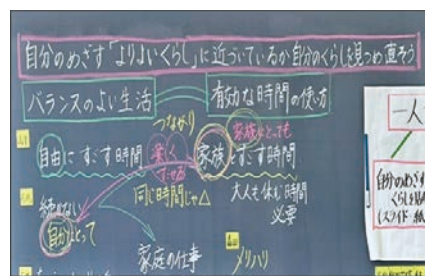 自分のめざす「よりよいくらし」に近づいているか自分のくらしを見つめ直そう
バランスのよい生活
有効な時間の使い方
つながり
家族にとっても
自由にすごす時間
楽しく
すごせる
家族とすごす時間
同じ時間じゃ△
大人も休む時間
必要
続かない
自分にとって
家庭の仕事
メリハリ
一人
自分のめざす
くらし
(スライド